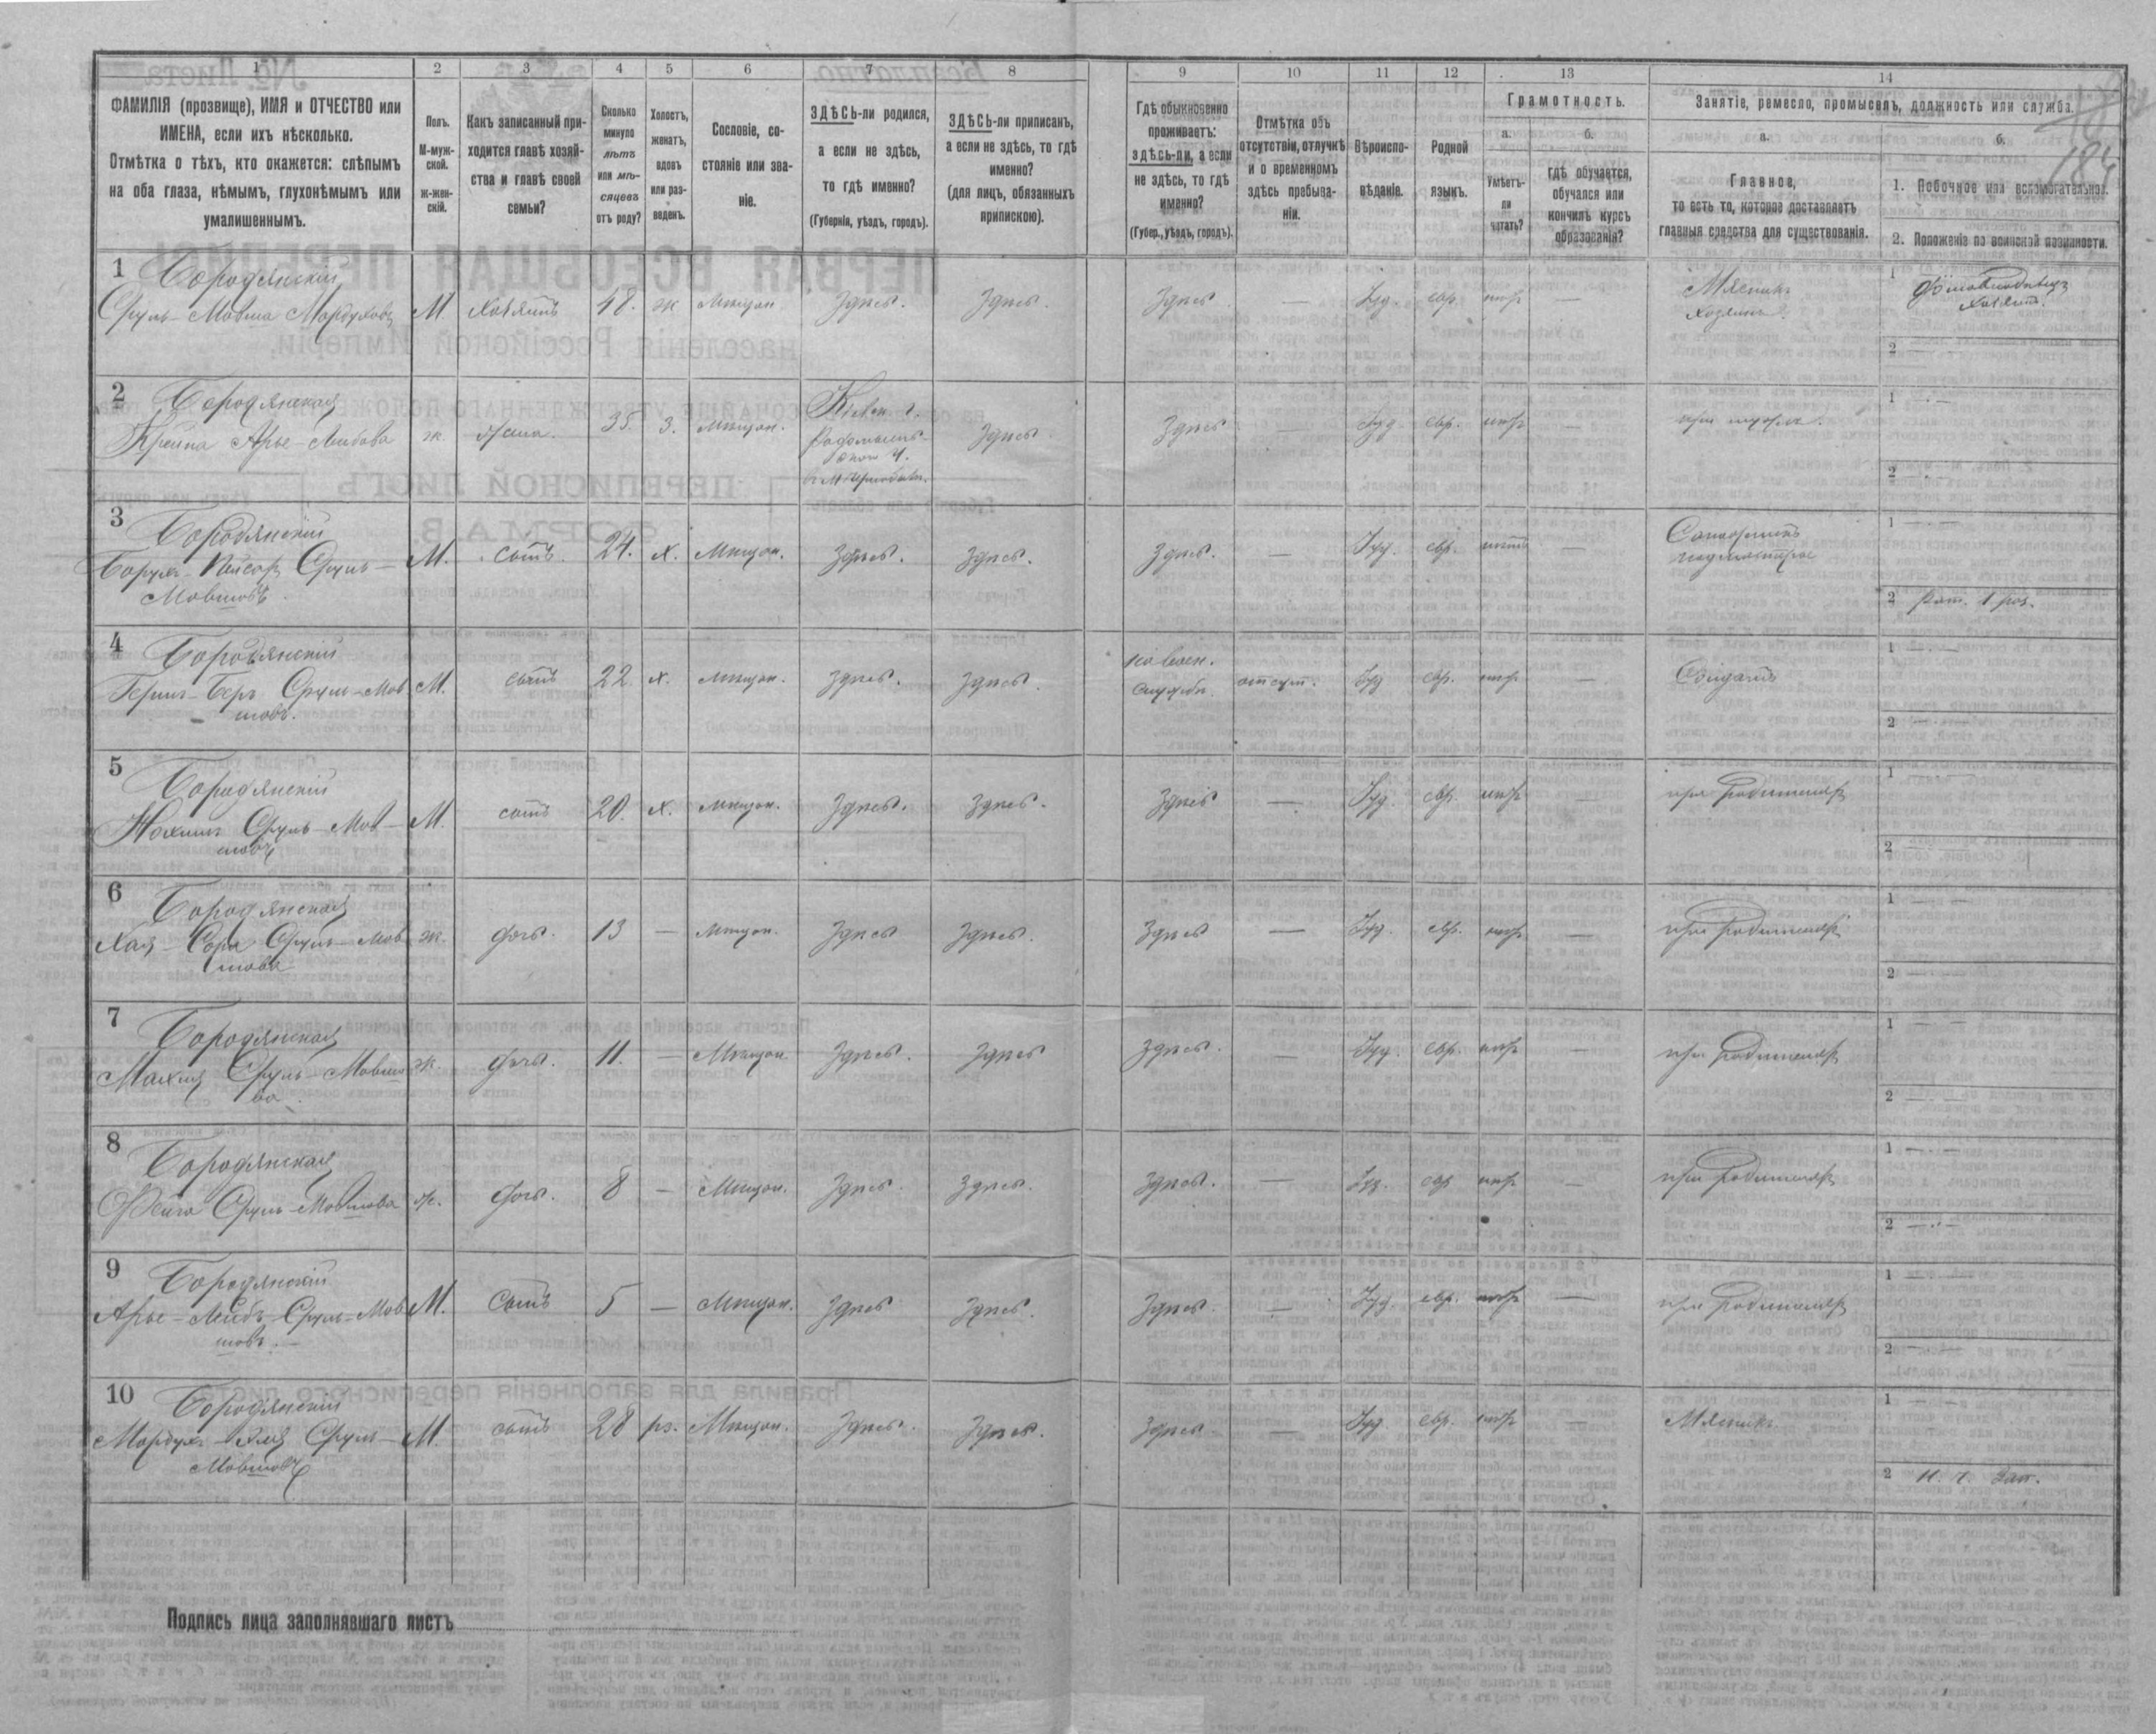 1
2
3
4
5
6
7
8
9
10
11
12
13
14
ФАМИЛІЯ (прозвище), ИМЯ и ОТЧЕСТВО или
ИМЕНА, если ихъ нѣсколько.
Отмѣтка о тѣхъ, кто окажется: слѣпымъ
на оба глаза, нѣмымъ, глухонѣмымъ или
умалишеннымъ.
Полъ.
М-муж-
ской.
ж-жен-
скій.
Какъ записанный при-
ходится главѣ хозяй-
ства и главѣ своей
семьи?
Сколько
минуло
лѣтъ
или мѣ-
сяцевъ
отъ роду?
Холостъ,
женатъ,
вдовъ
или раз-
веденъ.
Сословіе, со-
стояніе или зва-
ніе.
ЗДѢСЬ-ли родился,
а если не здѣсь,
то гдѣ именно?
(Губернія, уѣздъ, городъ).
ЗДѢСЬ-ли приписанъ,
а если не здѣсь, то гдѣ
именно?
(для лицъ, обязанныхъ
припискою).
Гдѣ обыкновенно
проживаетъ:
здѣсь-ли, а если
не здѣсь, то гдѣ
именно?
(Губер., уѣздъ, городъ).
Отмѣтка объ
отсутствіи, отлучкѣ
и о временномъ
здѣсь пребыва-
ніи.
Вѣроиспо-
вѣданіе.
Родной
языкъ.
Грамотность.
а.
Умѣетъ-
ли
читать?
б.
гдѣ обучается,
обучался или
кончилъ курсъ
образованія?
Занятіе, ремесло, промыселъ, должность или служба.
а.
Главное,
то есть то, которое доставляетъ
главныя средства для существованія.
б.
1. Побочное или вспомогательное.
2. Положеніе по воинской повинности.
184
1
Бородянскій
Сруль-Мовша Мордуховъ
М
хозяинъ
48.
ж
мѣщан
Здѣсь.
Здѣсь.
Здѣсь
—
Іуд.
евр.
нѣтъ
—
Мясникъ
хозяинъ.
1
домовладѣлецъ
хозяинъ.
2 —
2
Бородянская
Крейна Арье-Лейбова
ж.
жена.
35.
З.
мѣщан.
Кіевск. г.
Радомысль-
скаго у.
в м Чернобыль.
Здѣсь
Здѣсь
—
Іуд
евр.
нѣтъ
—
при мужѣ.
1 —
2 —
3
Бородянскій
Борухъ-Пейсахъ Сруль-
Мовшовъ.
М.
сынъ.
24.
х.
Мѣщан.
Здѣсь.
Здѣсь.
Здѣсь.
—
Іуд.
евр.
нѣтъ
—
Сапожникъ
подмастерье
1 —
2 Рат. 1 раз.
4
Бородянскій
Гершъ-Беръ Сруль-Мов
шовъ.
М.
сынъ
22.
х.
мѣщан.
Здѣсь.
Здѣсь.
на воен.
службѣ.
отсут.
Іуд
евр.
нѣтъ
—
Солдатъ
1 —
2 —
5
Бородянскій
Нохимъ Сруль-Мов-
шовъ
М.
сынъ
20.
х.
мѣщан.
Здѣсь.
Здѣсь.
Здѣсь
—
Іуд.
евр.
нѣтъ
—
при родителяхъ
1
2 —
6
Бородянская
Хая-Сора Сруль-Мов
шова
ж.
дочь.
13
—
мѣщан.
Здѣсь
Здѣсь.
Здѣсь
—
Іуд.
евр.
нѣтъ
—
при родителяхъ
1 —
2 —
7
Бородянская
Махля Сруль-Мовшо
ва.
ж.
дочь.
11.
—
Мѣщан.
Здѣсь.
Здѣсь
Здѣсь.
—
Іуд.
евр.
нѣтъ
—
при родителяхъ
1 —
2 —
8
Бородянская
Фейга Сруль-Мовшова
ж.
дочь.
8
—
Мѣщан.
Здѣсь.
Здѣсь.
Здѣсь.
—
Іуд.
евр
нѣтъ
—
при родителяхъ
1 —
2 —
9
Бородянскій
Арье-Лейбъ-Сруль-Мов
шовъ.
М.
Сынъ
5
—
мѣщан.
Здѣсь
Здѣсь.
Здѣсь.
—
Іуд.
евр.
нѣтъ
—
при родителяхъ
1 —
2 —
10
Бородянскій
Мордухъ- Сруль-
Мовшовъ
М.
сынъ
28
рз.
Мѣщан.
Здѣсь.
Здѣсь.
Здѣсь
—
Іуд.
евр.
нѣтъ
—
Мясникъ.
1 —
2 Н. ч. Зап.
Подпись лица заполнявшаго листъ